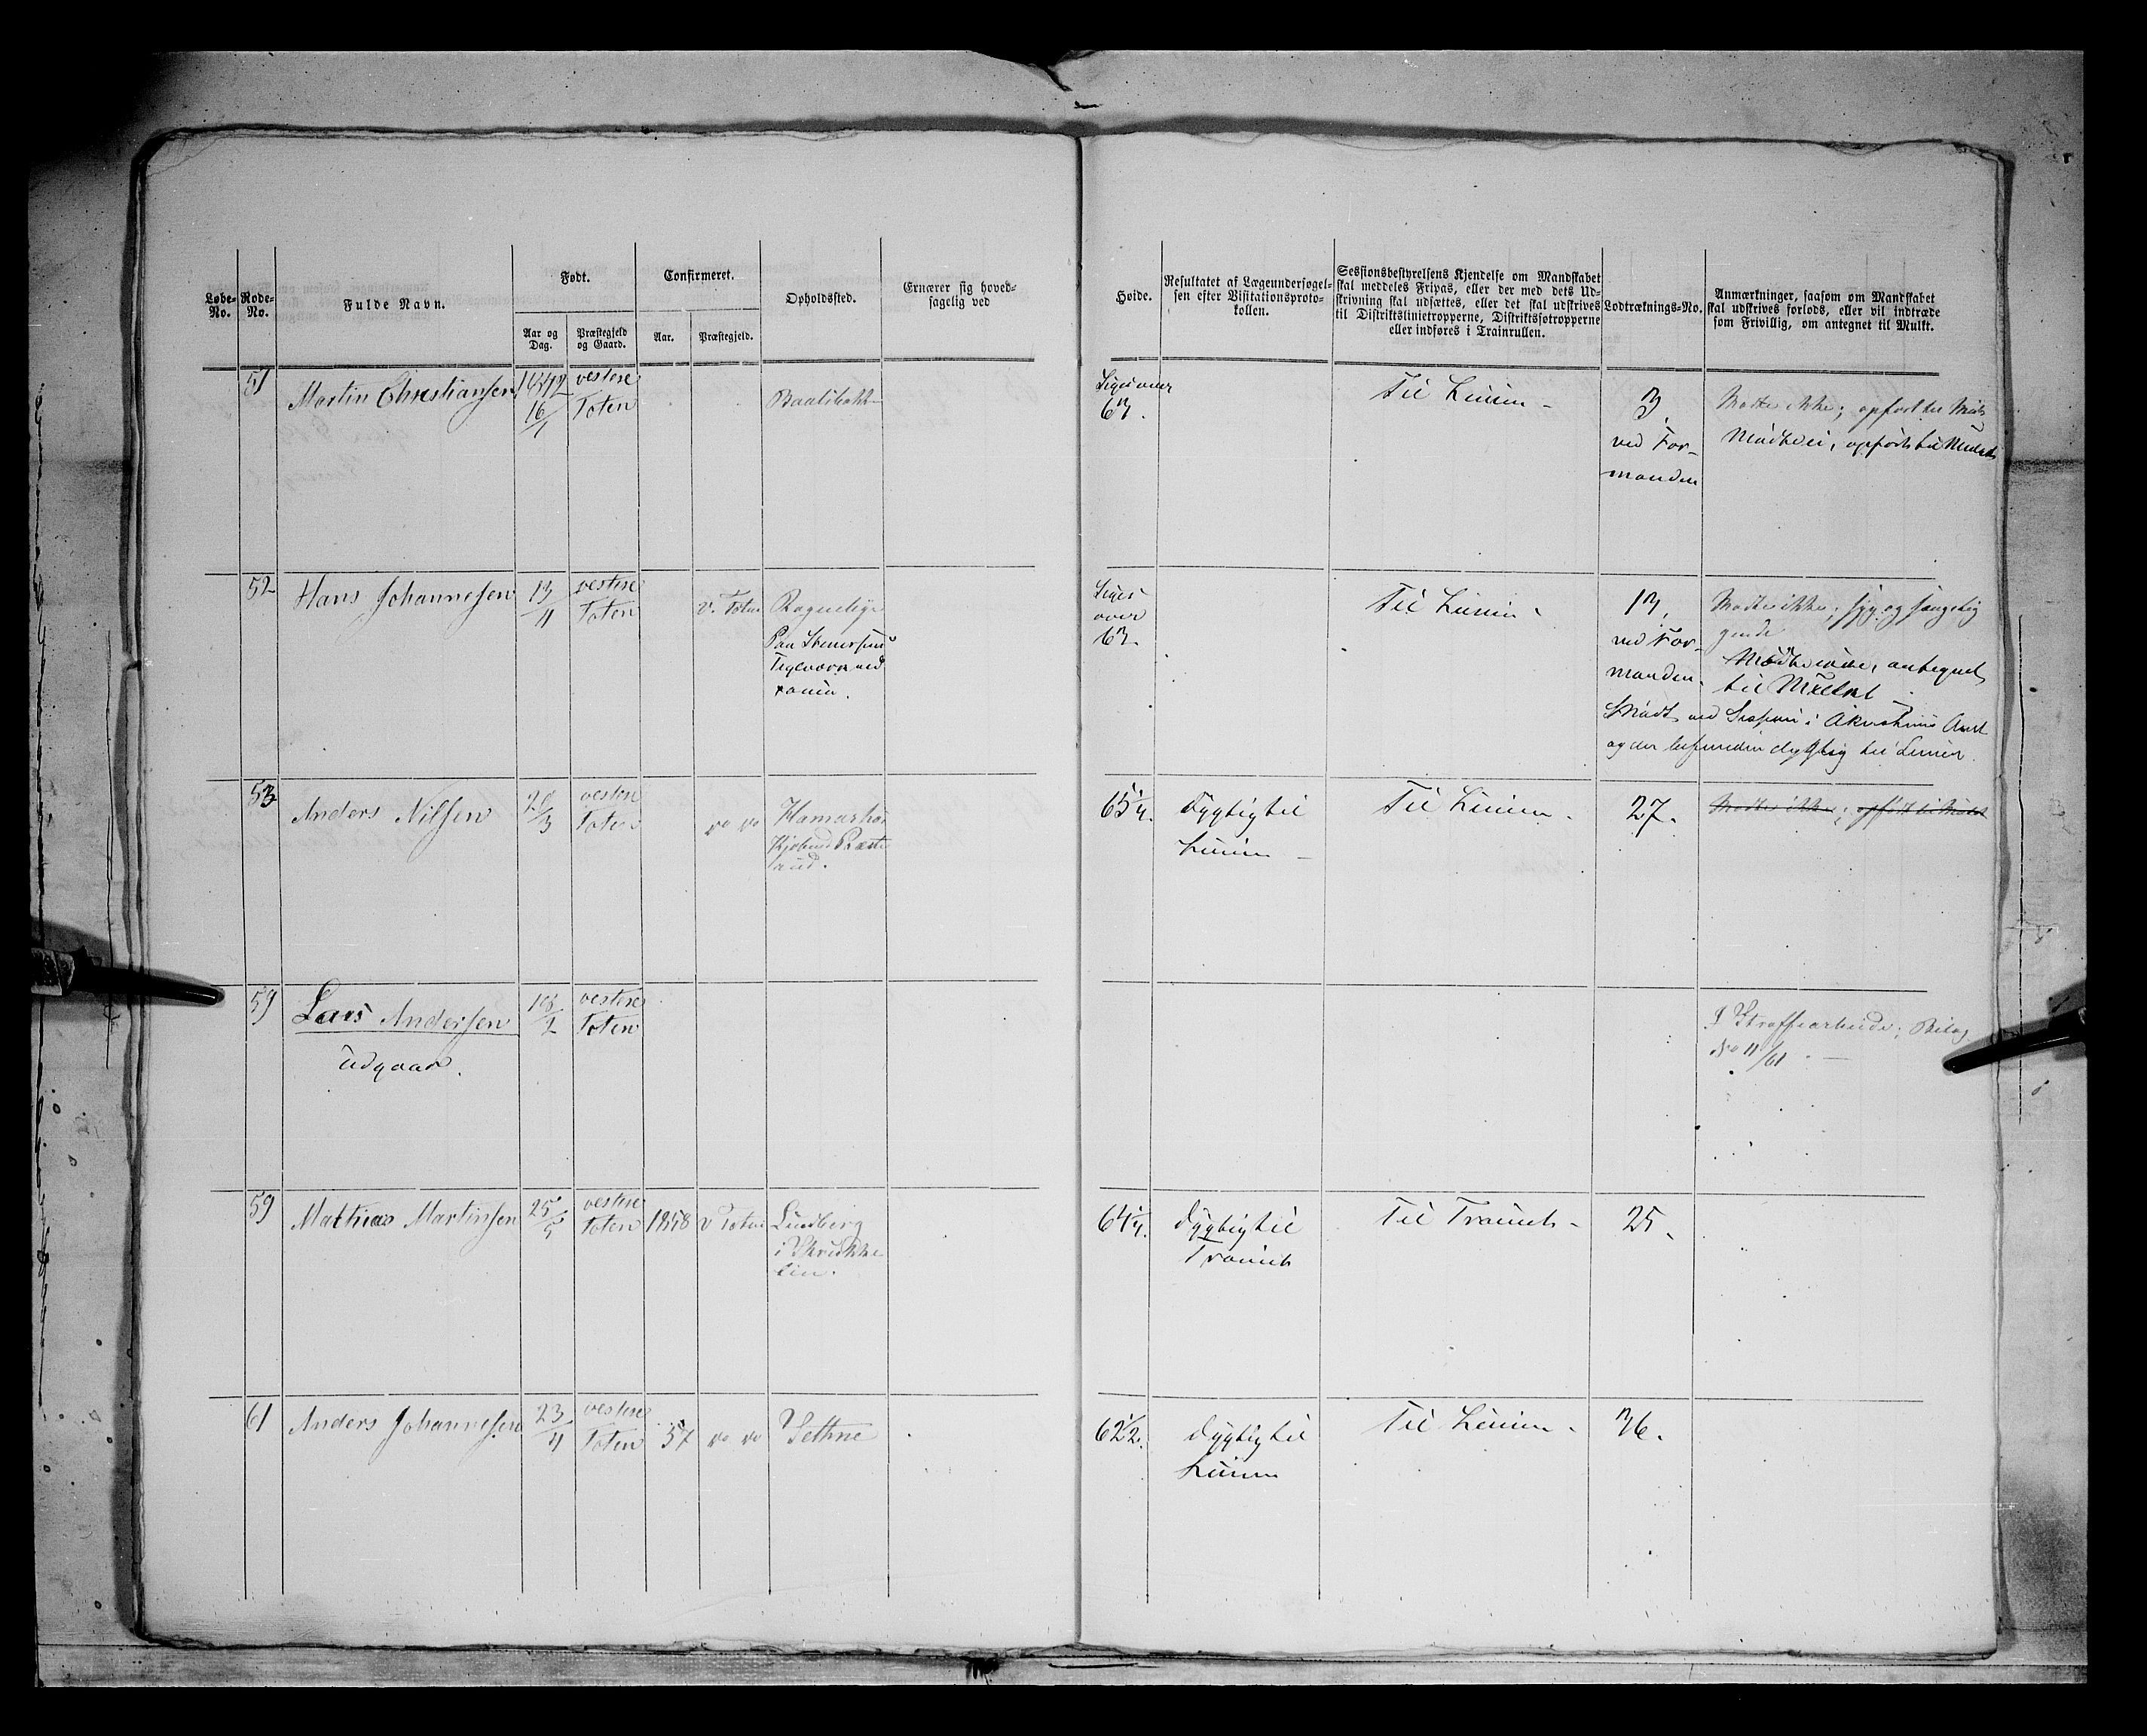 Løbe-No.
Rode-No.
Fulde Navn.
Født.
Aar og Dag.
Præstegjeld og Gaard.
Confirmeret.
Aar.
Præstegjeld.
Opholdssted.
Ernærer sig hoved-
sagelig ved
Høide.
Resultatet af Lægeundersøgel-
sen efter Visitationsproto-
kollen.
Sessionsbestyrelsens Kjendelse om Mandskabet
skal meddeles Fripas, eller der med dets Ud-
skrivning skal udsættes, eller det skal udskrives
til Distriktslinietropperne, Distriktsfotropperne
eller indføres i Trainrullen.
Lodtræknings-No.
Anmærkninger, saasom om Mandskabet
skal udskrives forlods, eller vil indtræde
som Frivillig, om antegnet til Mulkt.
51
Martin Christiansen
1842
16/1
vestre
Toten
63.
Til Linien -
3.
ved For-
manden
Mødte ikke; opført til
Mødte ei, opført til Mulkt
52
Hans Johannesen
13/4
vestre
Toten
v. Toten
over
63.
Til Linien
13.
ved For-
manden.
Mødte ikke; syg og sengelig
gende
Mødte ikke, antegnet
til Mulkt
Mødt ved Session i Akershuus Amt
og der befunden dygtig til Linien.
53
Anders Nilsen
vestre
Toten
do do
65 1/4.
Dygtig til
Linien -
Til Linien -
27.
Mødte ikke; opført til Mulkt
59
Lars Andersen
udgaar.
vestre
Toten
I Strafarbeide; Bilag
No 11/61
59
Mathias Martinsen
25/5
vestre
Toten
1858
v Toten
Lindberg
i
lien.
64 1/4.
Dygtig til
Trainet
Til Trainet -
25.
61
Anders Johannesen
23/4
vestre
Toten
57
do do
Sethne
62 1/2.
Dygtig til
Linien
Til Linien -
36.